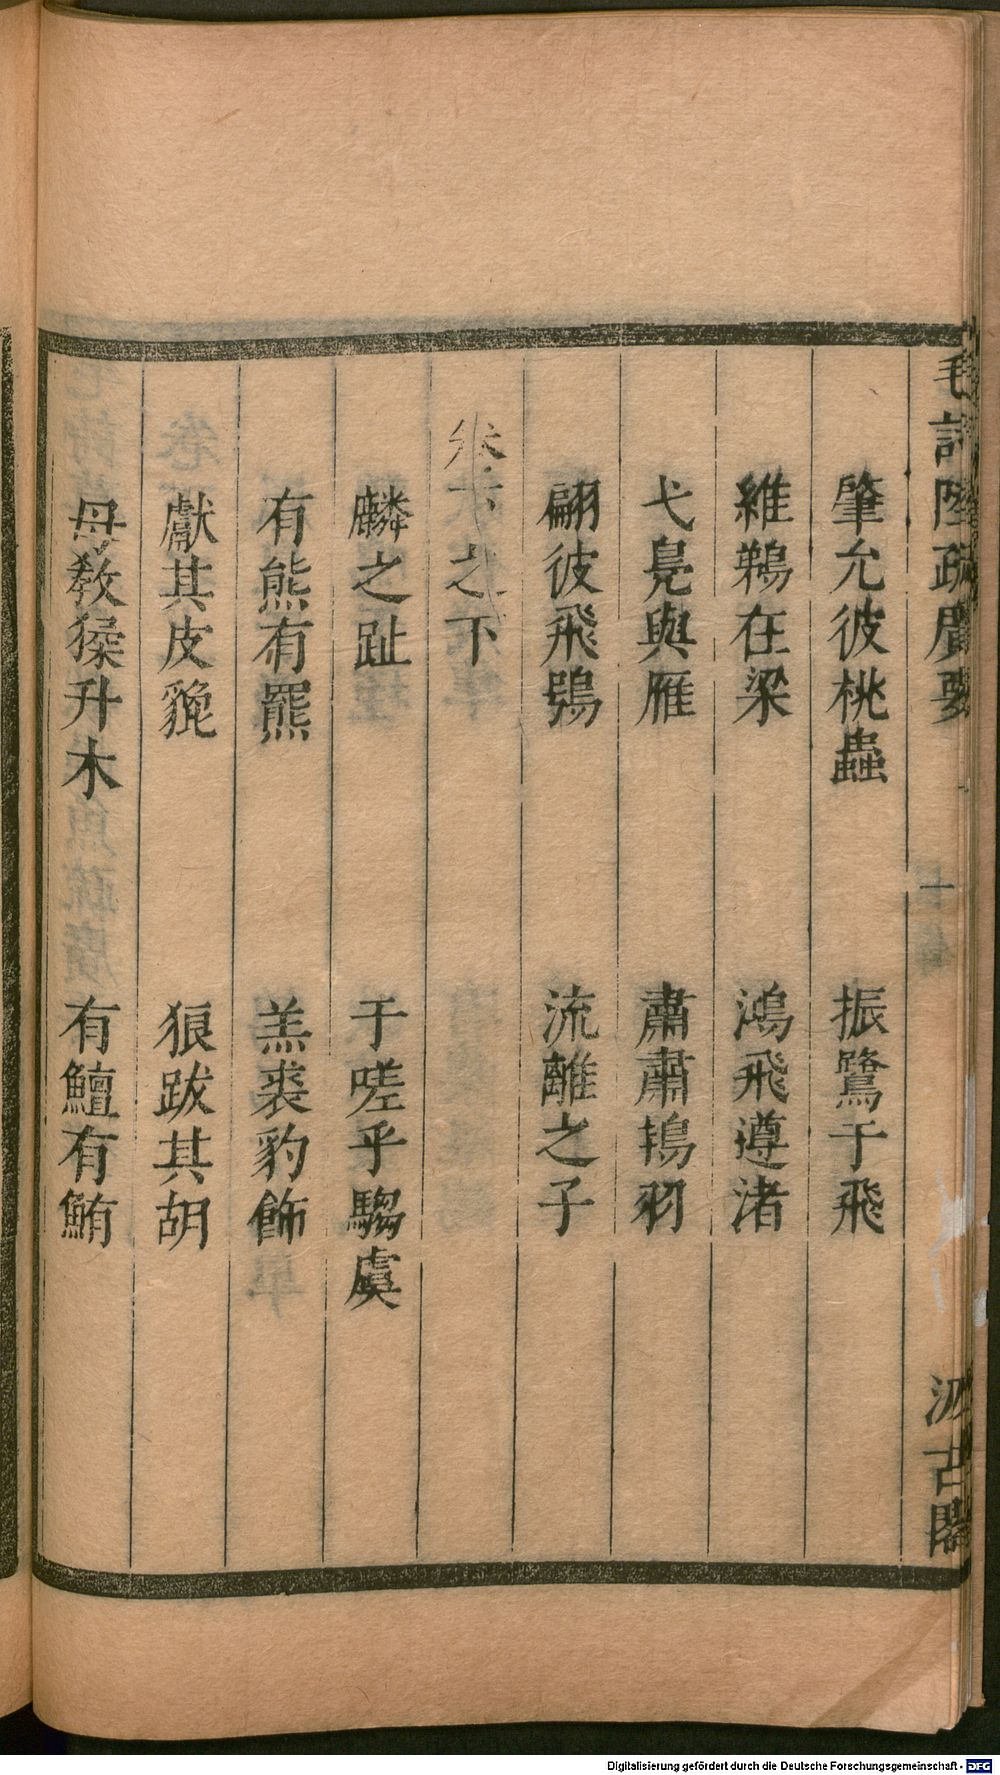 毛詩陸疏廣要
汲古閣
肇允彼桃蟲 振鷺于飛
維鵜在梁 鴻飛遵渚
弋鳧與雁 肅肅鴇羽
翩彼飛鴞 流離之子
之下
麟之趾 于嗟乎騶虞
有熊有羆 羔裘豹飾
獻其皮貔 狼跋其胡
毋教猱升木 有鱣有鮪
Digitalisierung gefördert durch die Deutsche Forschungsgemeinschaft - DFG